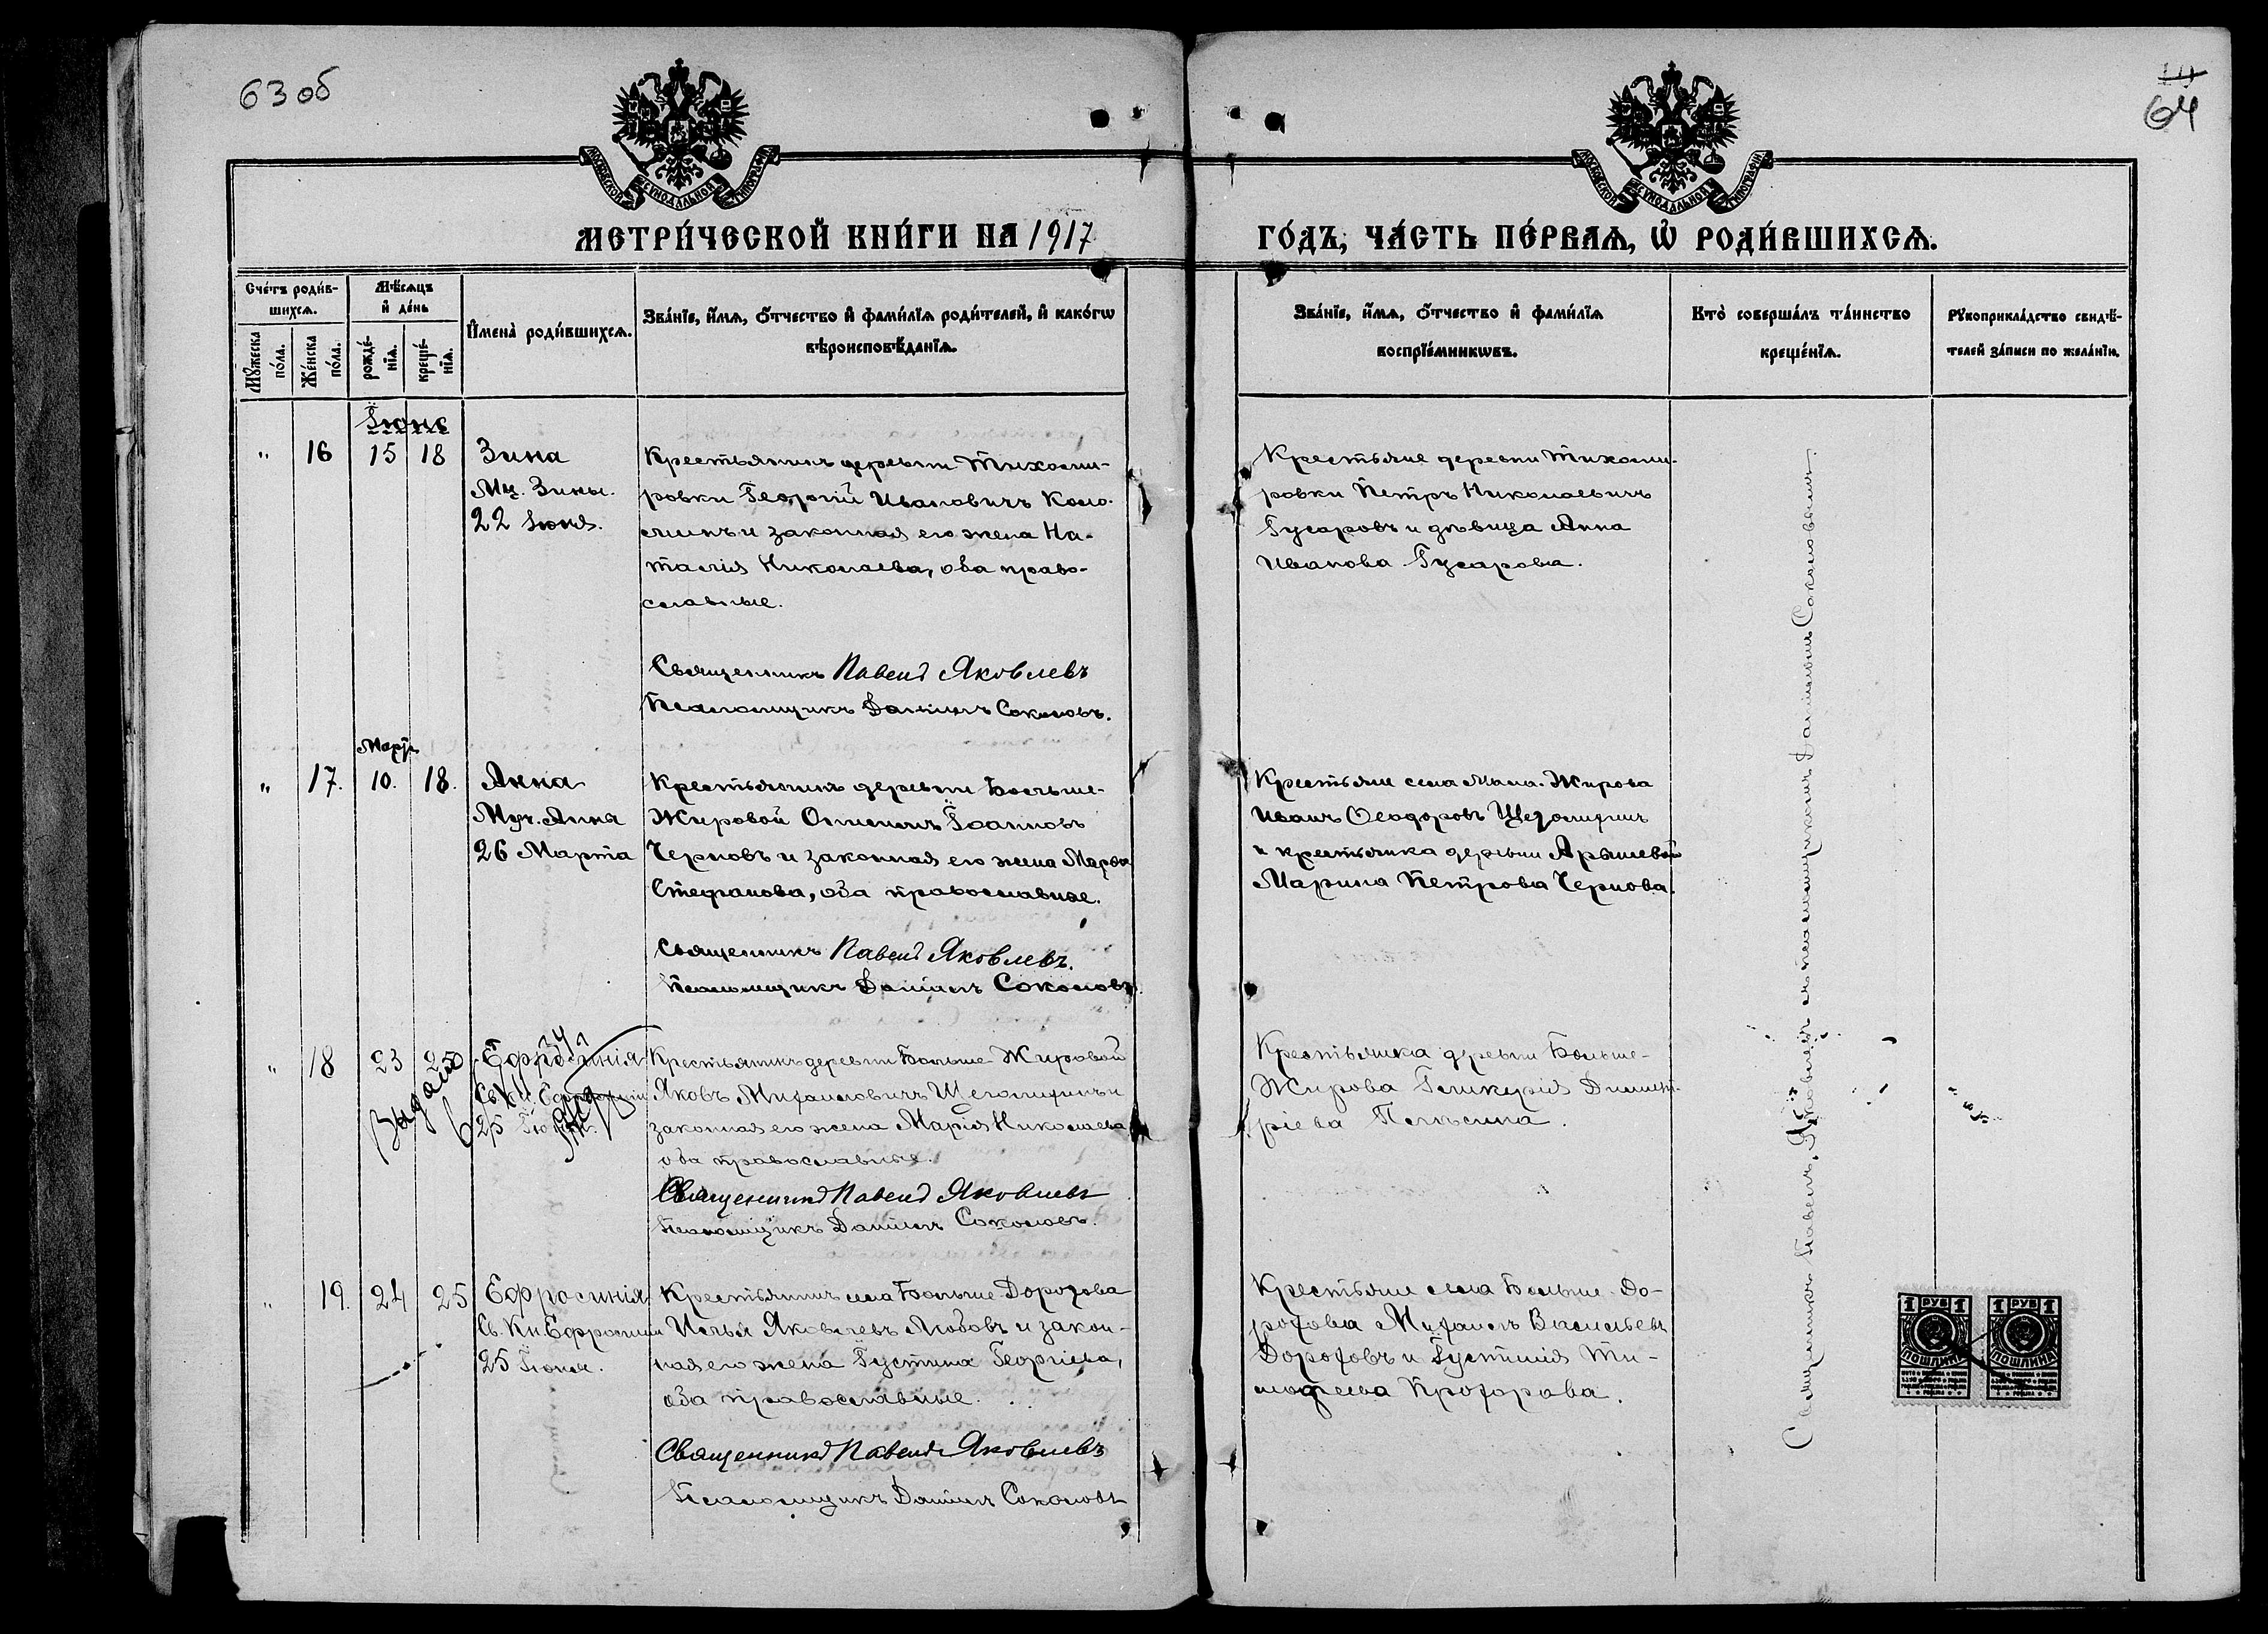 63 об
64
МОСКОВСКОЙ СѴНОДАЛЬНОЙ ТИПОГРАФІИ
МОСКОВСКОЙ СѴНОДАЛЬНОЙ ТИПОГРАФІИ
МЕТРИ́ЧЕСКОЙ КНИ́ГИ НА 1917
ГО́ДЪ, ЧА́СТЬ ПЕ́РВАѦ, Ѽ РОДИ́ВШИХСѦ.
Сче́тъ роди́в-
шихсѧ.
Мꙋ́жеска по́ла.
Же́нска по́ла.
Мѣ́сѧцъ
и҆ де́нь
рожде́-
нїѧ.
креще́-
нїѧ.
И҆мена̀ роди́вшихсѧ.
Зва́нїе, и҆́мѧ, ѻ҆́тчество и҆ фами́лїѧ роди́телей, и҆ како́гѡ
вѣроисповѣ́данїѧ.
Зва́нїе, и҆́мѧ, ѻ҆́тчество и҆ фами́лїѧ
воспрїе́мникѡвъ.
Кто̀ соверша́лъ та́инство
креще́нїѧ.
Рꙋкоприкла́дство свидѣ́-
телей за́писи по жела́нїю.
Іюнь
" 16 15 18 Зина
Мц. Зины.
22 Іюня.
Крестьянинъ деревни Тихоми-
ровки Георгій Ивановичъ Коло-
и законная его жена На-
талія Николаева, оба право-
славные.
Священникъ Павелъ Яковлевъ
Псаломщикъ Даніилъ Соколовъ.
Крестьяне деревни Тихоми-
ровки Петръ Николаевичъ
Гусаровъ и дѣвица Анна
Иванова Гусарова.
Март.
" 17. 10. 18. Анна
Муч. Анна
26 Марта
Крестьянинъ деревни Больше-
Жировой Іоанновъ
Черновъ и законная его жена Марѳа
Стефанова, оба православные.
Священникъ Павелъ Яковлевъ.
Псаломщикъ Даніилъ Соколовъ.
Крестьяне села Мало-Жирова
Иванъ Ѳеодоровъ Щеголихинъ
и крестьянка деревни
Марина Петрова Чернова.
" 18 23 25 Ефросинія
Св. Кн. Ефросиніи
25 Іюня.
Выдано
Крестьянинъ деревни Больше-Жировой
Яковъ Михаиловичъ Щеголихинъ и
законная его жена Марія Николаева
оба православные.
Священникъ Павелъ Яковлевъ
Псаломщикъ Даніилъ Соколовъ.
Крестьянка деревни Больше-
Жирова Гликерія Димит-
ріева
" 19. 24 25 Ефросинія
Св. Кн. Ефросиніи
25 Іюня.
Крестьянинъ села Больше Дорохова
Илья Яковлевъ Любовъ и закон-
ная его жена Іустина Георгіева,
оба православные.
Священникъ Павелъ Яковлевъ
Псаломщикъ Даніилъ Соколовъ
Крестьяне села Больше-До-
рохова Михаилъ Васильевъ
Дороховъ и Іустинія Ти-
моѳеева Прохорова.
Священникъ Павелъ Яковлевъ съ псаломщикомъ Даніиломъ Соколовымъ.
1 РУБ 1
ПОШЛИНА
1 РУБ 1
ПОШЛИНА